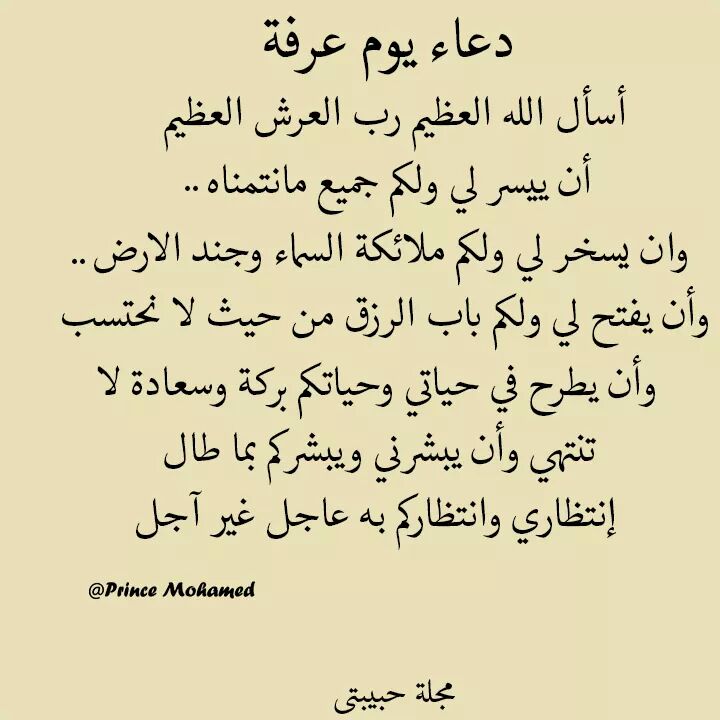 دعاء يوم عرفة
أسأل الله العظيم رب العرش العظيم
أن ييسر لي ولكم جميع مانتمناه ..
وان يسخر لي ولكم ملائكة السماء وجند الارض ..
وأن يفتح لي ولكم باب الرزق من حيث لا نحتسب
وأن يطرح في حياتي وحياتكم بركة وسعادة لا
تنتهي وأن يبشرني ويبشركم بما طال
إنتظاري وانتظاركم به عاجل غير آجل
@Prince Mohamed
مجلة حبيبتى